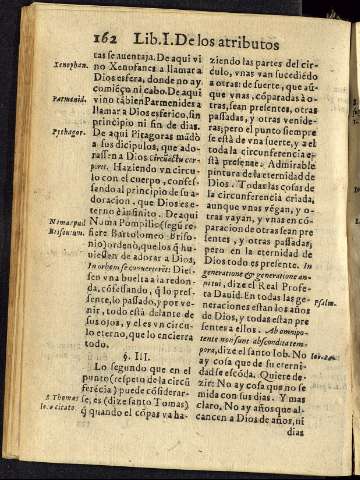 162 Lib. I. De los atributos
tas se auentaja. De aqui vi
no Xenofanes a llamar a
Dios esfera, donde no ay
comiẽço ni cabo. De aqui
vino tābien Parmenides a
llamar a Dios esferico, sin
principio ni fin de dias.
De aqui Pitagoras mādò
a sus dicipulos, que ado-
rassen a Dios circūactu cor-
pore. Haziendo vn circu
lo con el cuerpo, confes-
sando al principio de su a
doracion, que Dios es e-
terno è infinito. De aqui
Numa Pompilio (segū re-
fiere Bartolomeo Briso-
nio) ordenò, que los q̃ hu
uiessen de adorar a Dios,
In orbem se conuerterēt: Dies-
sen vna buelta a la redon-
da, cōfessando, q̃ lo pre-
sente, lo passado, y por ve-
nir, todo està delante de
sus ojos, y el es vn circu-
lo eterno, que lo encierra
todo.
§. III.
Lo segundo que en el
punto (respeto de la circū
ferēcia) puede cōsiderar-
se, es (dize santo Tomas)
q̃ quando el cōpas va ha-
ziendo las partes del cir-
culo, vnas van sucediēdo
a otras: de suerte, que aū
que vnas, cōparadas à o-
tras, sean presentes, otras
passadas, y otras venide-
ras; pero el punto siempre
se està de vna suerte, y a el
toda la circunferencia e-
stà presente. Admirable
pintura de la eternidad de
Dios. Todas las cosas de
la circunferencia criada,
aunque vnas vẽgan, y o-
tras vayan, y vnas en cō-
paracion de otras sean pre
sentes, y otras passadas;
pero en la eternidad de
Dios todo es presente. In
generatione & generatione an-
ni tui, dize el Real Profe-
ta Dauid. En todas las ge-
neraciones estan los años
de Dios, y todas estan pre
sentes a ellos. Ab omnipo-
tente non sunt abscondita tem-
pora, dize el santo Iob. No
ay cosa que de su eterni-
dad se escōda. Quiere de-
zir: No ay cosa que no se
mida con sus dias. Y mas
claro, No ay años que al-
cancen a Dios de años, ni
dias
Xenophan.
Parmenid.
Pythagor.
Numa pud
Brisonium.
S. Thomas
loco citato.
Psalm.
Iob. 24.